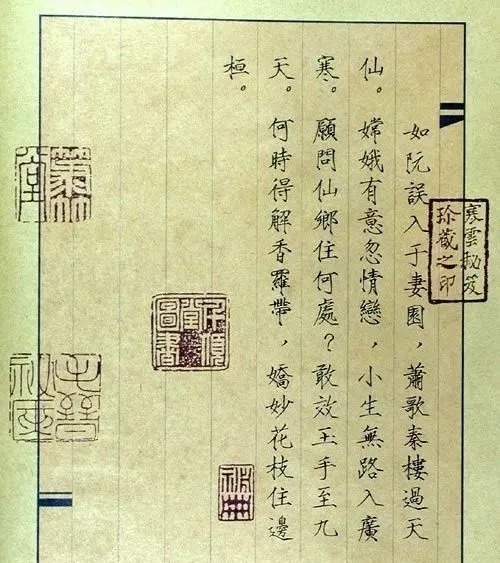 如阮誤入于妻園，蕭歌秦樓過天
仙。嫦娥有意忽情戀，小生無路入廣
寒。顧問仙鄉住何處？敢效玉手至九
天。何時得解香羅帶，嬌妙花枝住邊
桓。
寒雲秘笈
珍藏之印